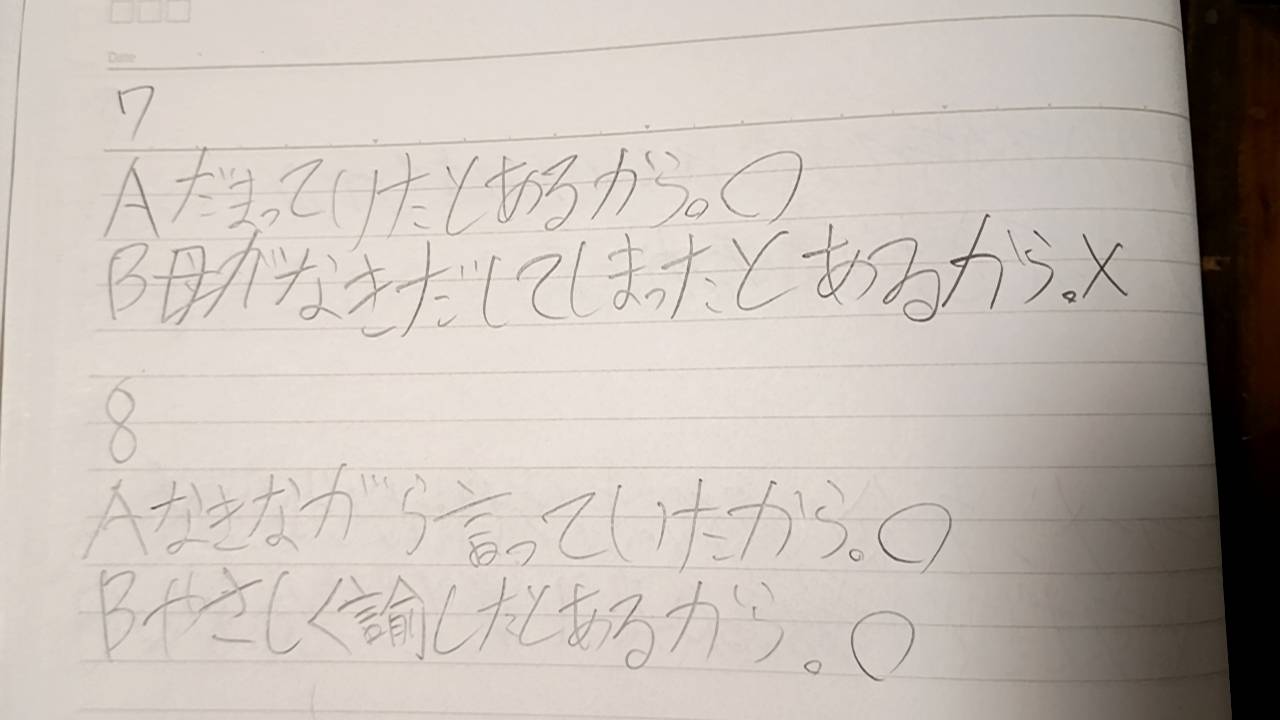 Date
7
Aだまっていけたとあるから。○
B母がなきだしてしまったとあるから。×
8
Aなきながら言っていけたから。○
Bやさしく諭したとあるから。○